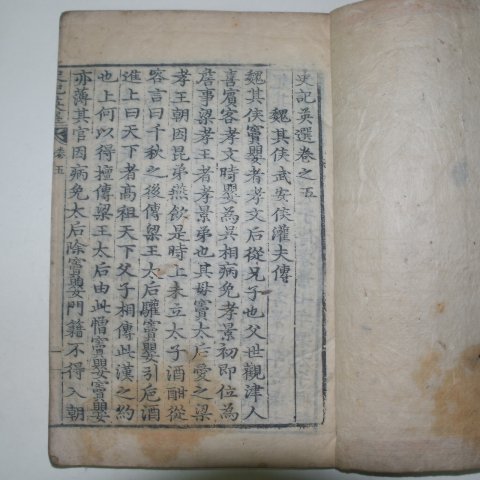 史記英選卷之五
魏其侯武安侯灌夫傳
魏其侯竇嬰者孝文后從兄子也父世觀津人
喜賓客孝文時嬰為吳相病免孝景初即位為
詹事梁孝王者孝景弟也其母竇太后愛之梁
孝王朝因昆弟燕飮是時上未立太子酒酣從
容言曰千秋之後傳梁王太后驩竇嬰引巵酒
進上曰天下者高祖天下父子相傳此漢之約
也上何以得擅傳梁王太后由此憎竇嬰竇嬰
亦薄其官因病免太后除竇嬰門籍不得入朝
卷五
一